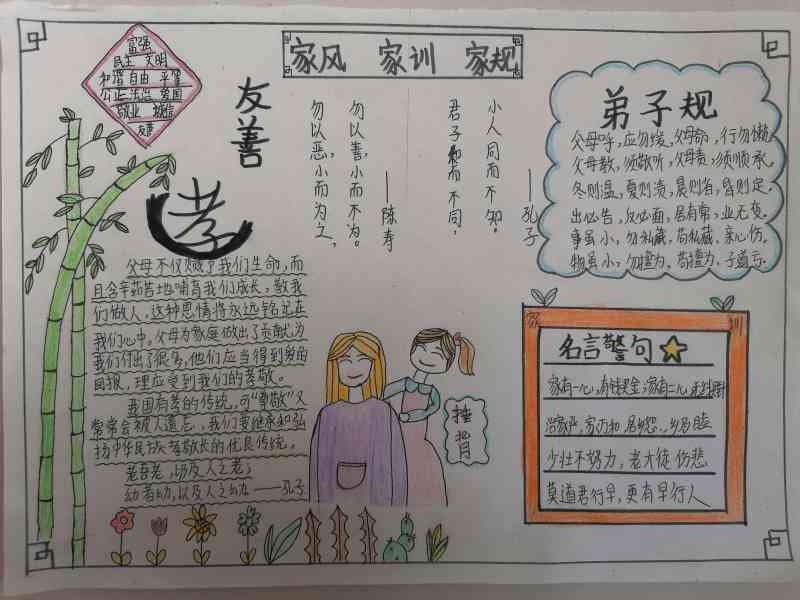 家风 家训 家规
富强
民主 文明
和谐 自由 平等
公正 法治 爱国
敬业 诚信
友善
友善
孝
勿以恶,小而为之,
勿以善,小而不为。
——陈寿
君子和而不同,
小人同而不和。
——孔子
弟子规
父母呼,应勿缓,父母命,行勿懒
父母教,须敬听,父母责,须顺承,
冬则温,夏则凊,晨则省,昏则定,
出必告,反必面,居有常,业无变。
事虽小,勿擅为,苟私藏,亲心伤。
物虽小,勿擅为,苟擅为,子道亏.
父母不仅赋予我们生命,而
且含辛茹苦地哺育我们成长,教我
们做人,这种恩情将永远铭记在
我们心中,父母为家庭做出了贡献,为
我们付出了很多,他们应当得到
回报,理应受到我们的孝敬。
我国有孝的传统,可"尊敬"又
常常会被人遗忘,我们要继承和弘
扬中华民族孝敬长的优良传统。
老吾老,以及人之老;
幼吾幼,以及人之幼 ——孔子
捶背
家
训
名言警句
家有一心,有钱买金;家有二心,
治家严,家乃和 居乡恕,乡乃睦
少壮不努力,老大徒伤悲.
莫道君行早,更有早行人